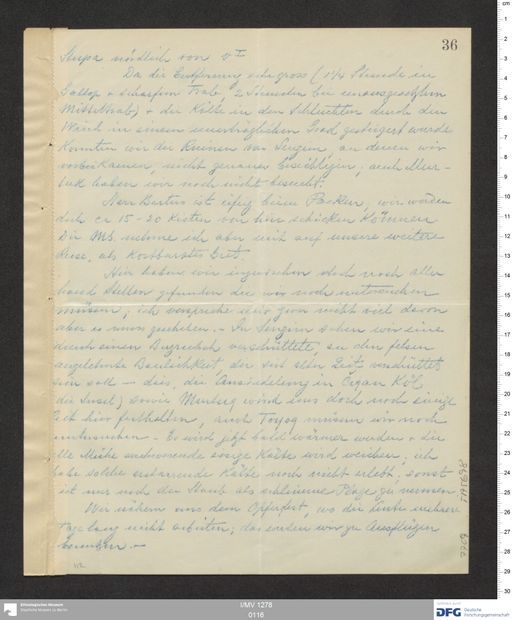 36
Stupa nördlich von V I
Da die Entfernung sehr gross (1 1/4 Stunde in
Gallop + scharfem Trab 2 Stunden bei
Mitteltrab) + die Kälte in den Schluchten durch den
Wind in einem unerträglichen Grad gesteigert wurde
konnten wir die Ruinen von Sengim, an denen wir
vorbei kamen, nicht genauer besichtigen; auch Mur-
tuk haben wir noch nicht besucht.
Herr Bartus ist eifrig beim Packen, wir werden
doch ca 15-20 Kisten von hier schicken können
Die MS. nehme ich aber mit auf unsere weitere
Reise, als kostbarstes Gut.
Hier haben wir inzwischen doch noch aller
hand Stellen gefunden die wir noch untersuchen
müssen; ich verspreche mir zwar nicht viel davon
aber es muss geschehen. - In Sengim sahen wir eine
durch einen Bergrutsch verschüttete, an den Felsen
angelehnte Baulichkeit, die seit alter Zeit verschüttet
sein soll — dies, die Ansiedelung in Čigan Köl
(die Insel) sowie Murtuq wird uns doch noch einige
Zeit hier festhalten, auch Toyoq müssen wir noch
untersuchen. - Es wird jetzt bald wärmer werden + die
alle Mühe erschwerende eisige Kälte wird weichen. ich
habe solche erstarrende Kälte noch nicht erlebt, sonst
ist nur noch der Staub als schlimme Plage zu nennen
Wir nähern uns dem Opferfest, wo die Leute mehrere
Tage lang nicht arbeiten; das werden wir zu Ausflügen
benutzen. —
I/MV 1278
0116
Ethnologisches Museum
Staatliche Museen zu Berlin
DFG Deutsche
Forschungsgemeinschaft